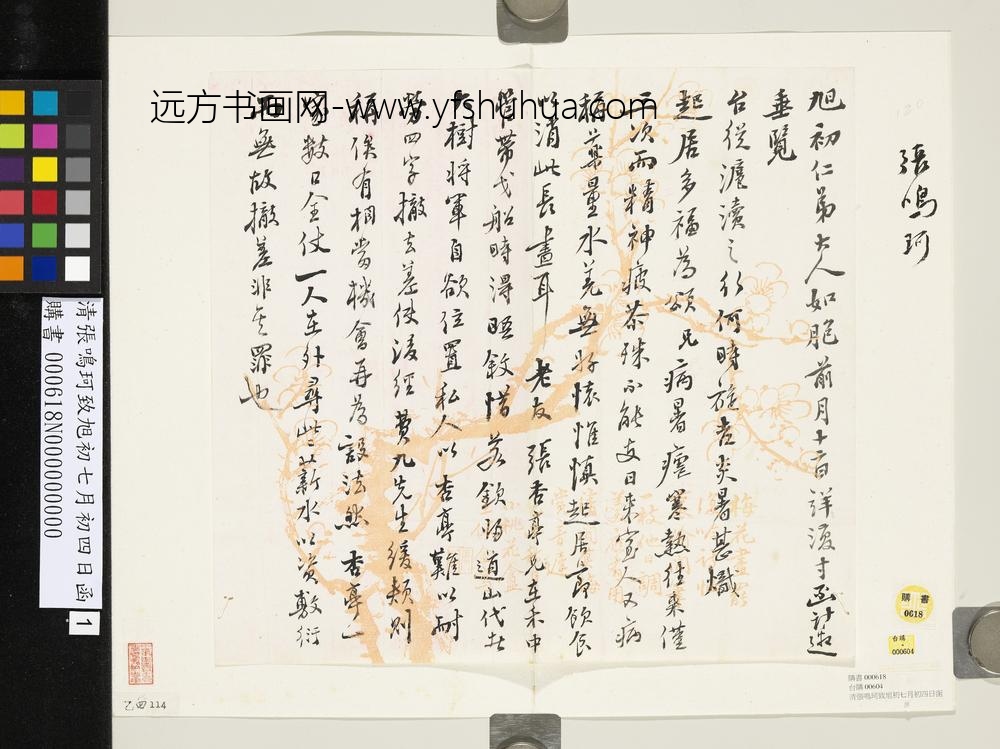 远方书画网-www.yfshuhua.com
張鳴珂
旭初仁弟大人如胞前月十一日詳復寸函計邀
垂覽
台從滬瀆之行何時旋吉炎暑甚熾
起居多福為頌兄病暑瘧寒熱往來僅
二次而精神疲茶殊不能支日來室人又病
稱藥量水羌無好懷惟慎起居節飲食
以消此長晝耳 老友張杏亭兄在禾中
帶戈船時得晤敘惜若欽陽道山代者
樹將軍自欲位置私人以杏亭難以耐
勞四字撤去差使浚經費九先生緩頰則
稱俟有相當機會再為設法然杏亭一
家數口全仗一人在外尋此薪水以資敷衍
無故撤差非其罪也
清張鳴珂致旭初七月初四日函
購書 000618N000000000
1
購書
0618
台購
000604
購書 000618
台購 00604
清張鳴珂致旭初七月初四日函
乙四114